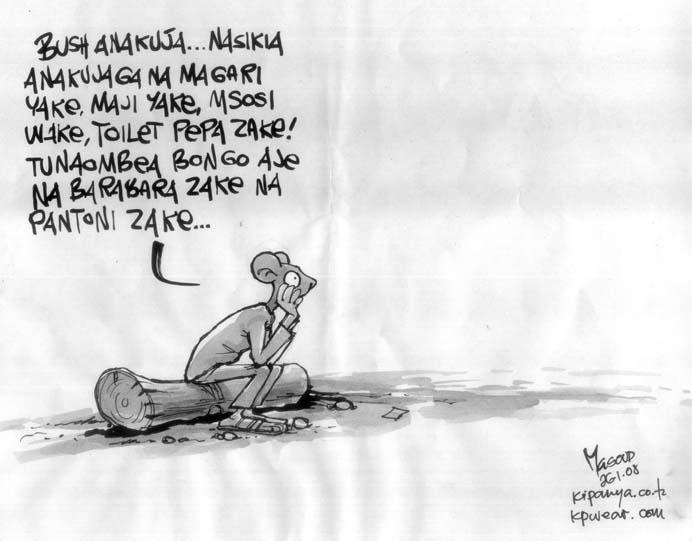 BUSH ANAKUJA... NASIKIA
ANAKUJAGA NA MAGARI
YAKE, MAJI YAKE, MSOSI
WAKE, TOILET PEPA ZAKE!
TUNAOMBEA BONGO AJE
NA BARABARA ZAKE NA
PANTONI ZAKE...
MASOUD
26.1.08
kipanya.co.tz
kpwear.com